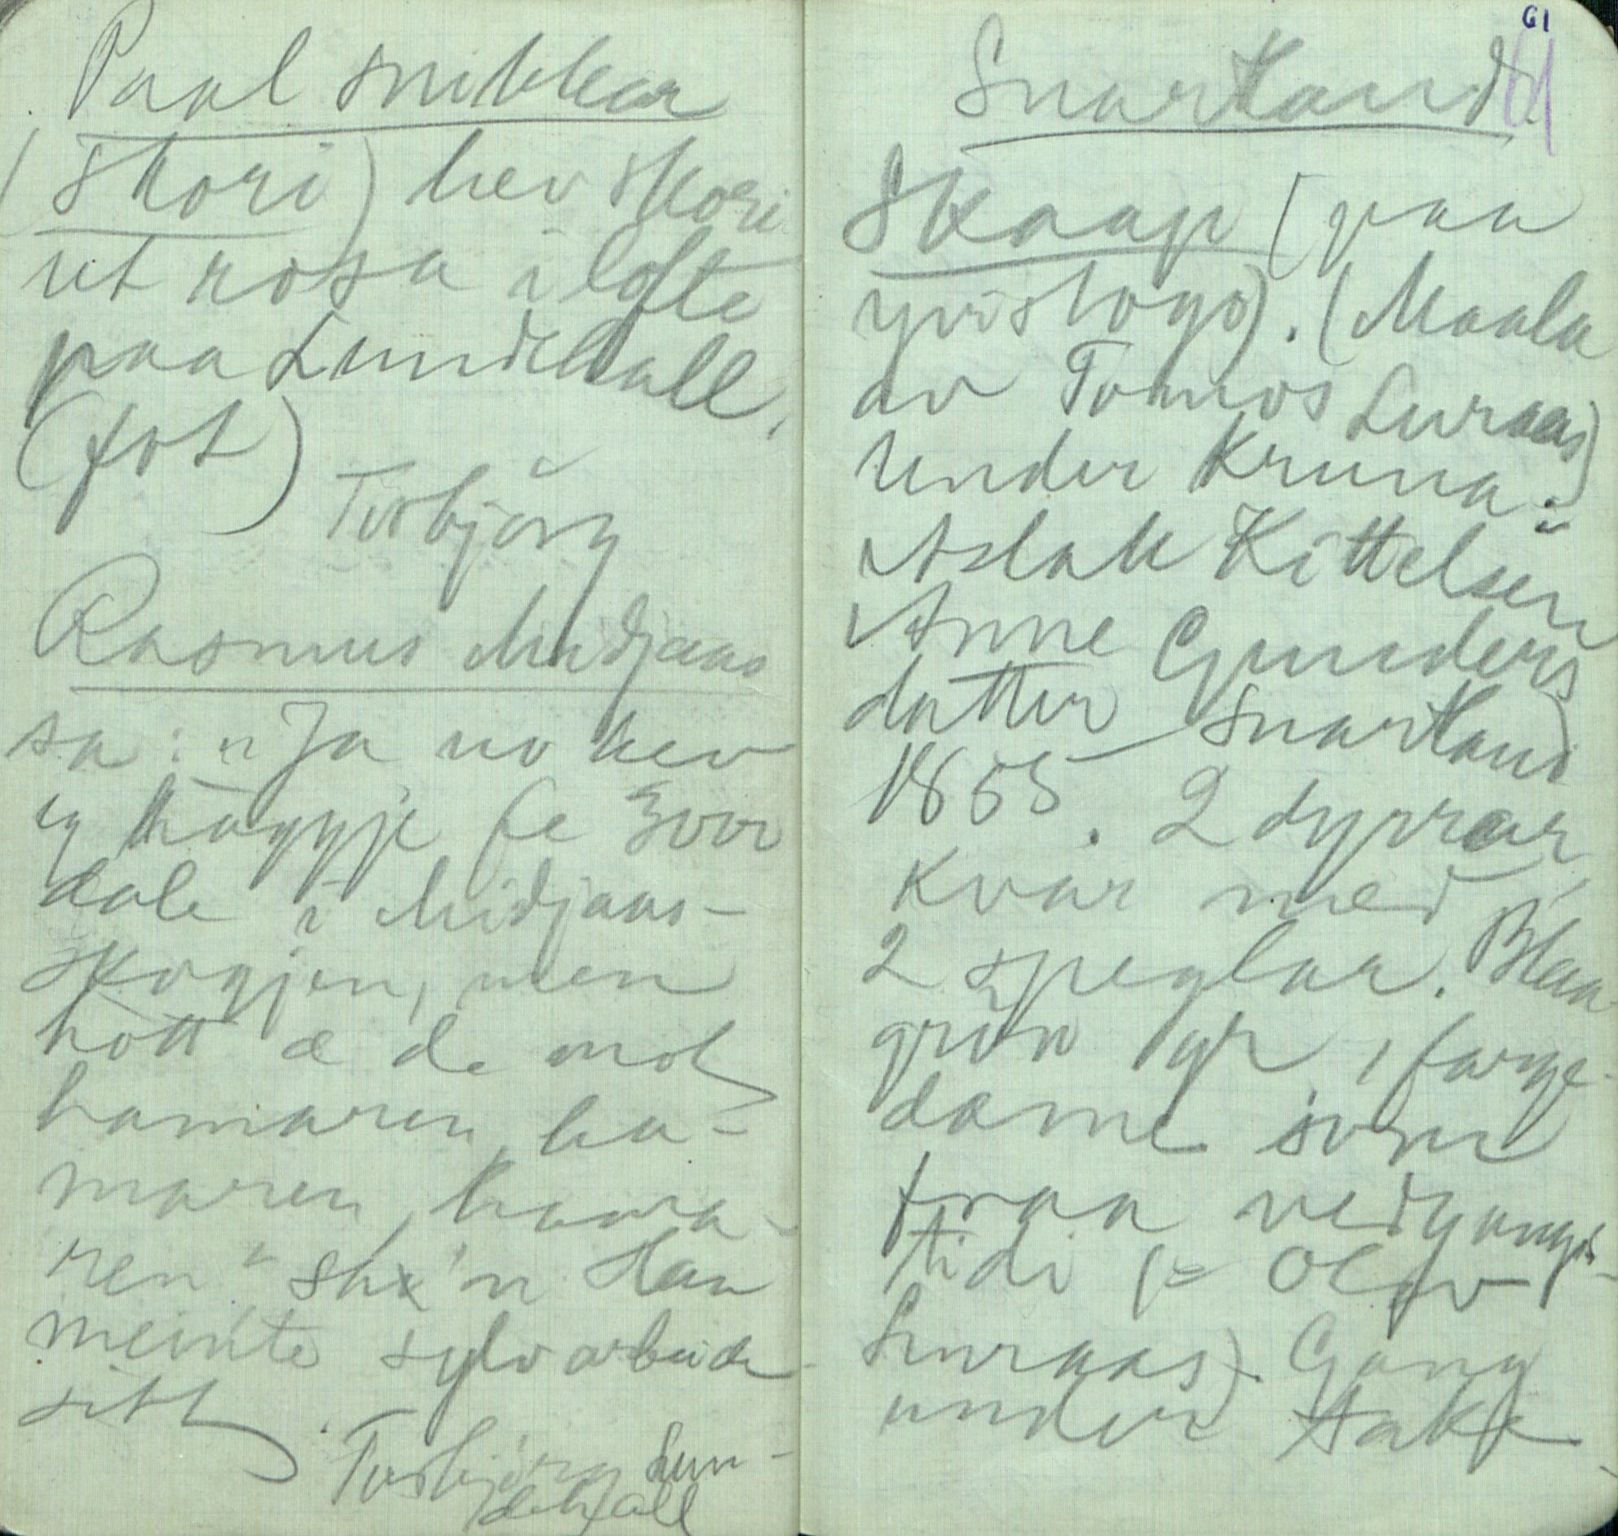 Paal snikkar
(Skori) hev skori
ut rosa i lofte
paa Lundekvall,
(fot)
Torbjörg
Rasmus Midjaas
sa: "Ja no hev
eg höggje
dale i Midjaas-
skogjen, men
hott æ de mot
hamaren, ha-
maren, hama-
ren" sa'n Han
meinte sylvarbeide
sitt.
Torbjörg Lun-
dekvall
61
61
Snartland
Skaap (paa
yvistogo). (Maala
av Tomos Luraas)
under Kruna:
Aslak Kittelsen
Anne Gunders
datter Snartland
1855. 2 dyrrar
kvar med
2 speglar. Blaa
grön yr, farge-
dame som
fraa nedgangs-
tidi (= Olav
Luraas). Gang
under take